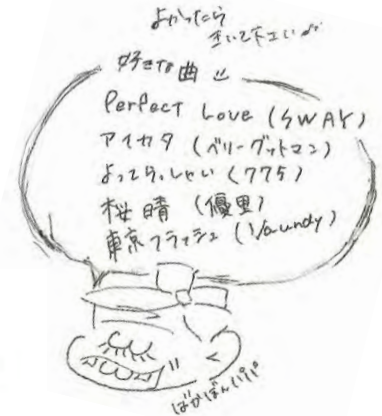 よかったら
きいて下さい♪
好きな曲
Perfect Love (SWAY)
アイカタ (ベリーグットマン)
よってらっしゃい (775)
桜晴 (優里)
東京フラッシュ (Vaundy)
ばかぼんパパ